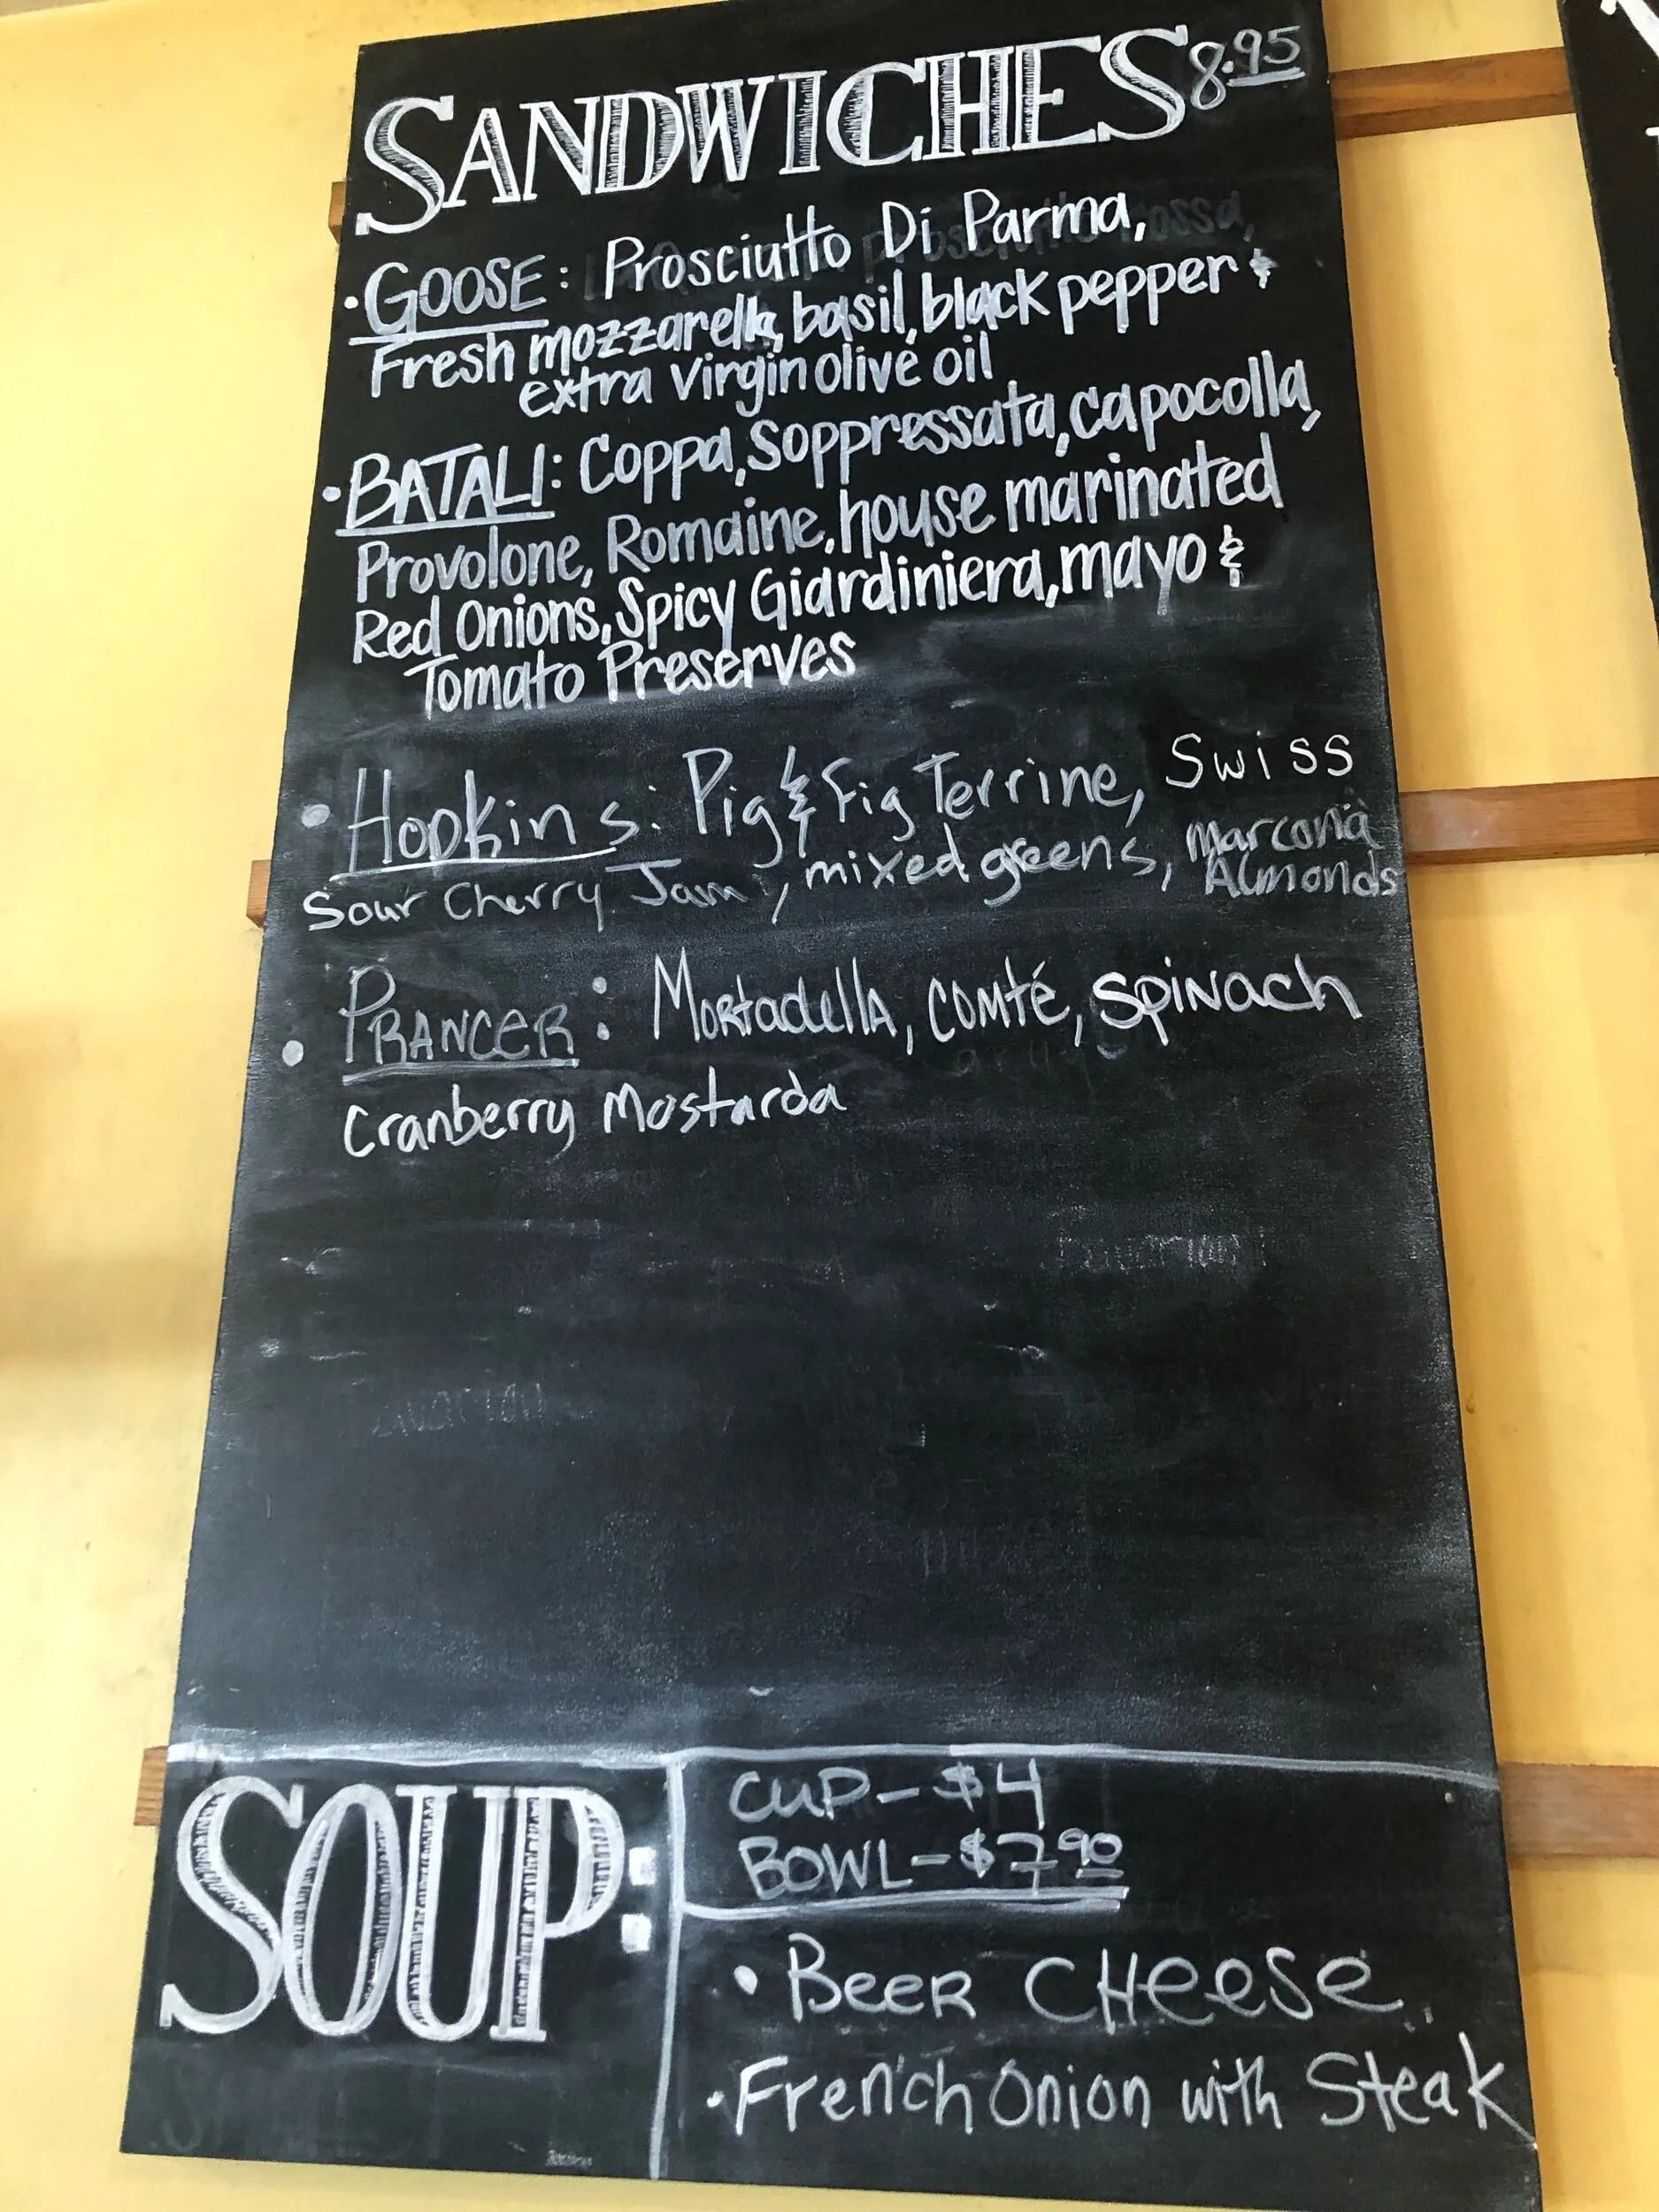 SANDWICHES 8.95
• GOOSE: Prosciutto Di Parma,
Fresh mozzarella, basil, black pepper &
extra virgin olive oil
• BATALI: Coppa, Soppressata, Capocolla,
Provolone, Romaine, house marinated
Red Onions, Spicy Giardiniera, mayo &
Tomato Preserves
• Hopkins: Pig & Fig Terrine, Swiss
Sour Cherry Jam, mixed greens, Marcona
Almonds
• PRANCER: Mortadella, Comté, Spinach
Cranberry Mostarda
SOUP:
CUP - $4
BOWL - $7.90
• Beer Cheese
• French Onion with Steak